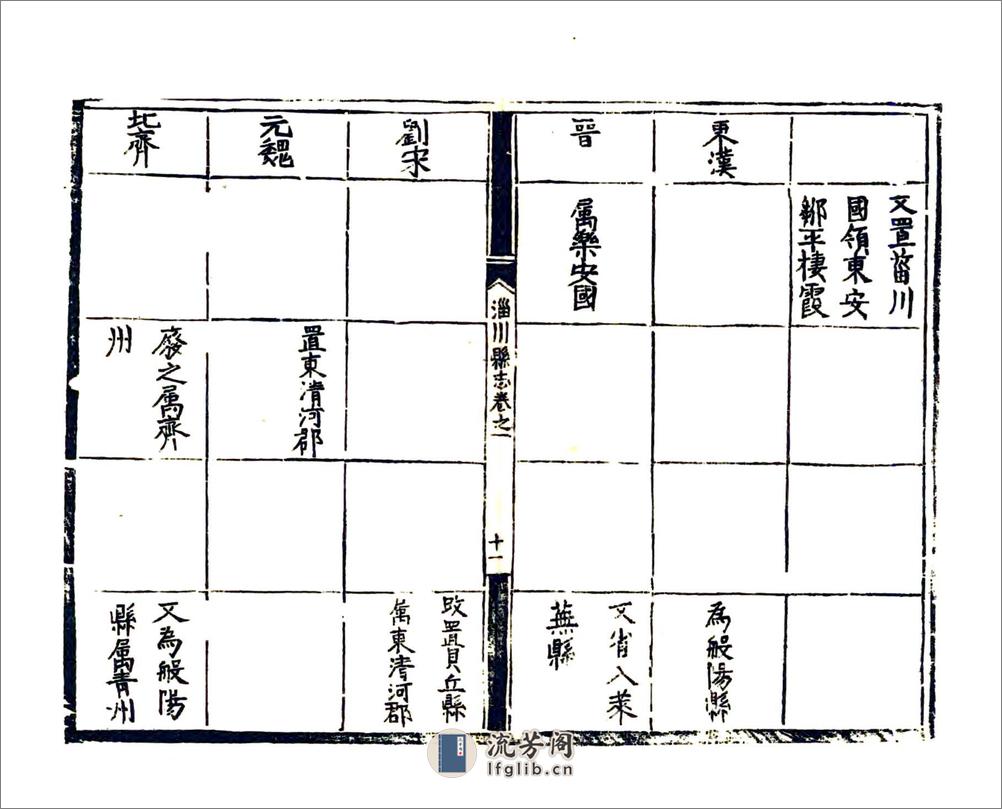 又置菑川
國領東安
鄒平棲霞
東漢
為般陽縣
晉
属樂安國
又省入萊
蕪縣
淄川縣志卷之一
十一
劉宋
改置貝丘縣
属東清河郡
元魏
置東清河郡
北齊
廢之属齊
州
又為般陽
縣属青州
流芳阁
lfglib.cn